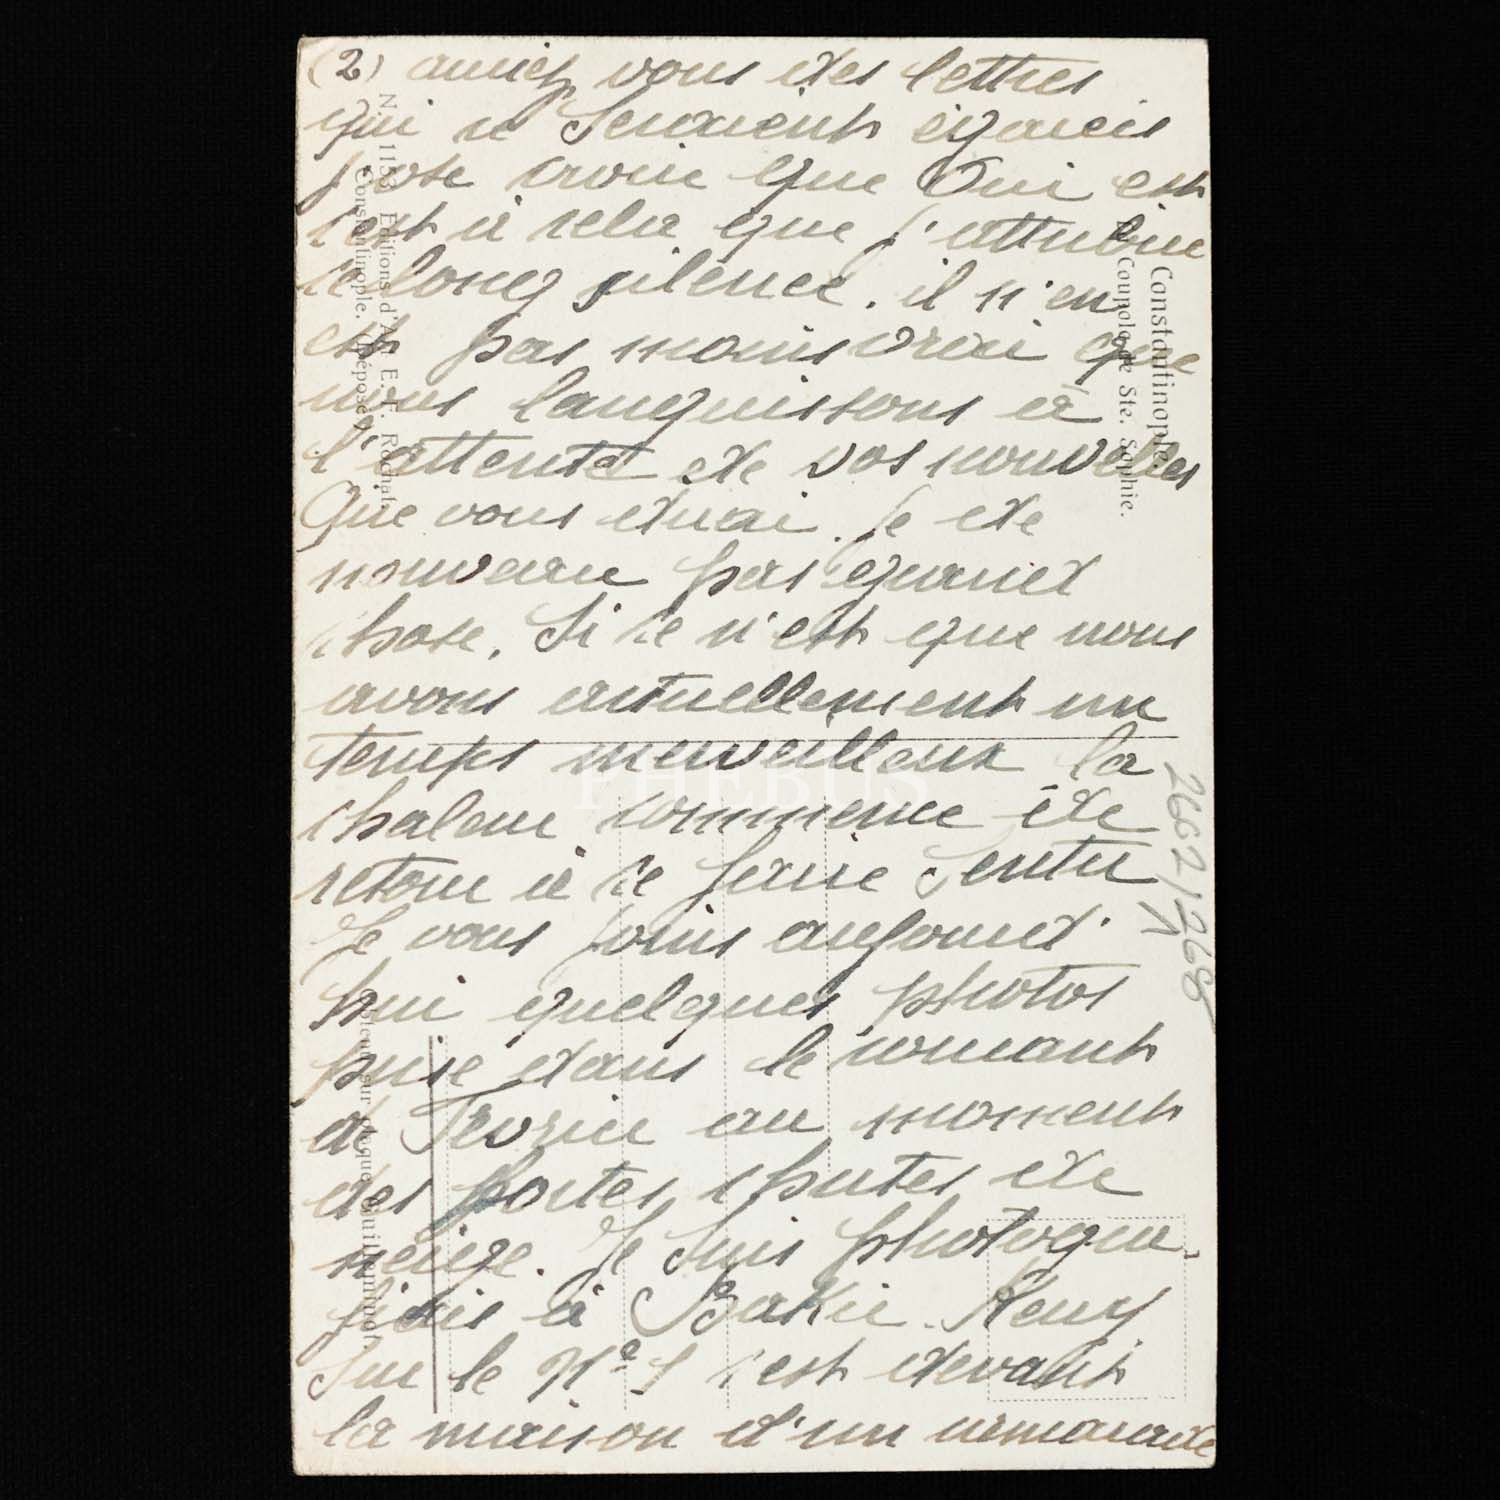 (2) auriez vous des lettres
qui se seraient égarées
j'ose croire que Oui est
c'est à cela que j'attribue
ce long silence. il n'en
est pas moins vrai que
nous languissons à
l'attente de vos nouvelles
Que vous dirai je de
nouveau pas grand
chose. Si ce n'est que nous
avons actuellement un
temps merveilleux la
chaleur commence de
retour à se faire sentir
Je vous joins aujourd'
hui quelques photos
prise dans le courant
de Fevrier au moment
des fortes chutes de
neige. Je suis photogra-
fiée à Bakir-Keuy
Sur le N° 1 c'est devant
la maison d'un camarade
Constantinople.
Coupole de Ste. Sophie.
N 1153 Editions d'Art E. F. Rochat,
Constantinople. (Déposé)
sur plaque Guilleminot.
2662/268
1
PHEBUS